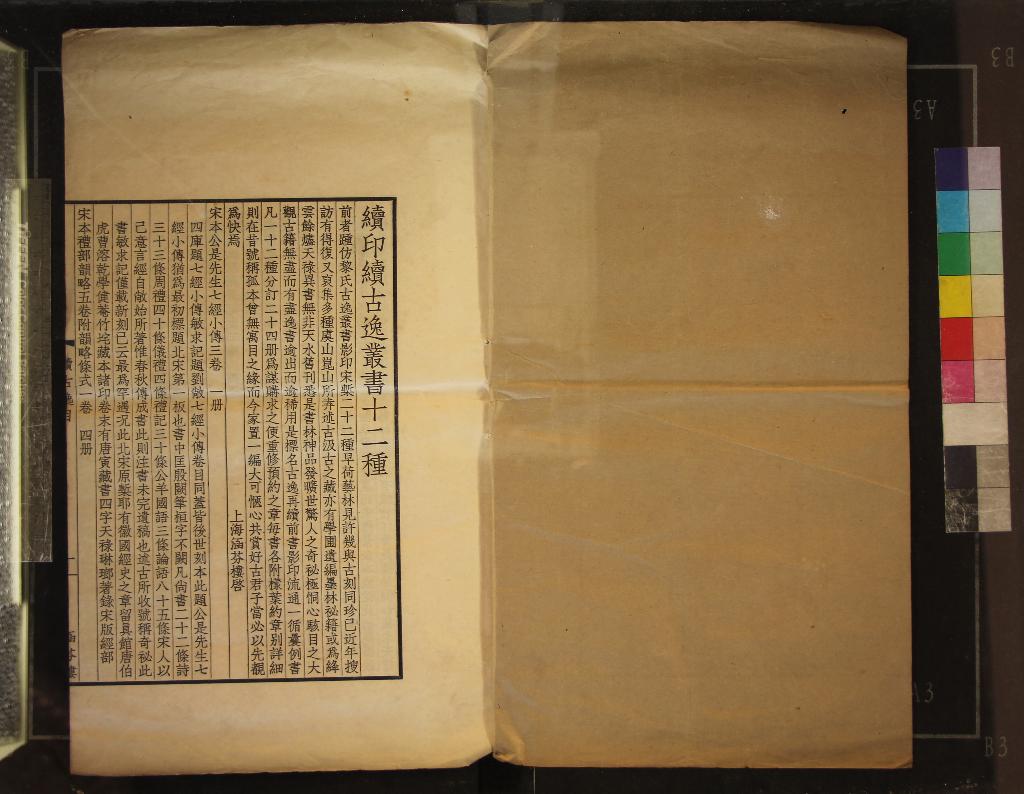 續印續古逸叢書十二種
前者踵仿黎氏古逸叢書影印宋槧二十二種早荷藝林見許幾與古刻同珍已近年搜
訪有得復又裒集多種虞山崑山所弆述古汲古之藏亦有學圃遺編墨林秘籍或為絳
雲餘燼天祿異書無非天水舊刊悉是書林神品發曠世驚人之奇秘極恫心駭目之大
觀古籍無盡而有盡逸書逾出而逾稀用是標名古逸再續前書影印流通一循曩例書
凡一十二種分訂二十四册為謀購求之便重修預約之章每書各附樣葉約章別詳細
則在昔號稱孤本曾無寓目之緣而今家置一編大可愜心共賞好古君子當必以先覩
為快焉
上海涵芬樓啓
宋本公是先生七經小傳三卷 一册
四庫題七經小傳敏求記題劉敞七經小傳卷目同蓋皆後世刻本此題公是先生七
經小傳猶為最初標題北宋第一板也書中匡殷闕筆桓字不闕凡尚書二十二條詩
三十三條周禮四十條儀禮四條禮記三十條公羊國語三條論語八十五條宋人以
己意言經自敞始所著惟春秋傳成書此則注書未完遺稿也述古所收號稱奇秘此
書敏求記僅載新刻已云最為罕遇況此北宋原槧耶有徽國經史之章留真館唐伯
虎曹溶乾學健菴竹垞藏本諸印卷末有唐寅藏書四字天祿琳瑯著錄宋版經部
宋本禮部韻略五卷附韻略條式一卷 四册
續古逸目
一
涵芬樓
A3
B3
A3
B3